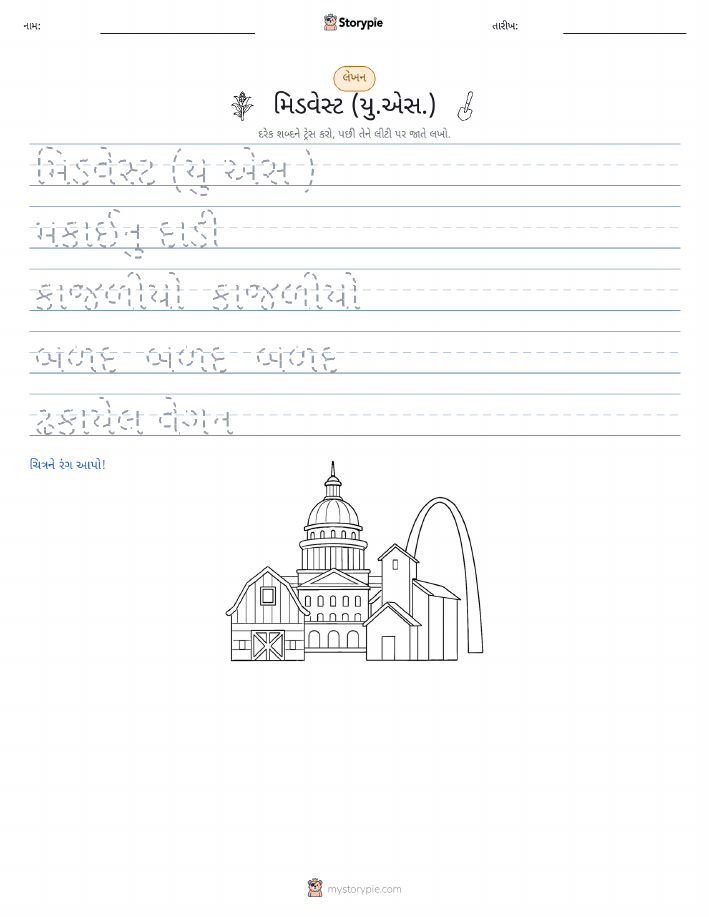 નામ:
Storypie
તારીખ:
લેખન
મિડવેસ્ટ (યુ.એસ.)
દરેક શબ્દને ટ્રેસ કરો, પછી તેને લીટી પર જાતે લખો.
મિડવેસ્ટ (યુ એસ )
મકાઈનુ દાડી
કાજળીયો કાજળીયો
બળદ બળદ બળદ
ઢકાયેલ વેગન
ચિત્રને રંગ આપો!
mystorypie.com